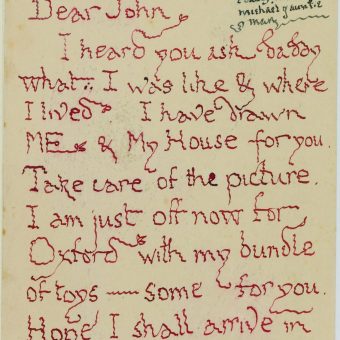 Dear John,
michael & aunt E
& mary
I heard you ask daddy
what I was like & where
I lived. I have drawn
ME & My House for you.
Take care of the picture.
I am just off now for
Oxford with my bundle
of toys — some for you.
Hope I shall arrive in